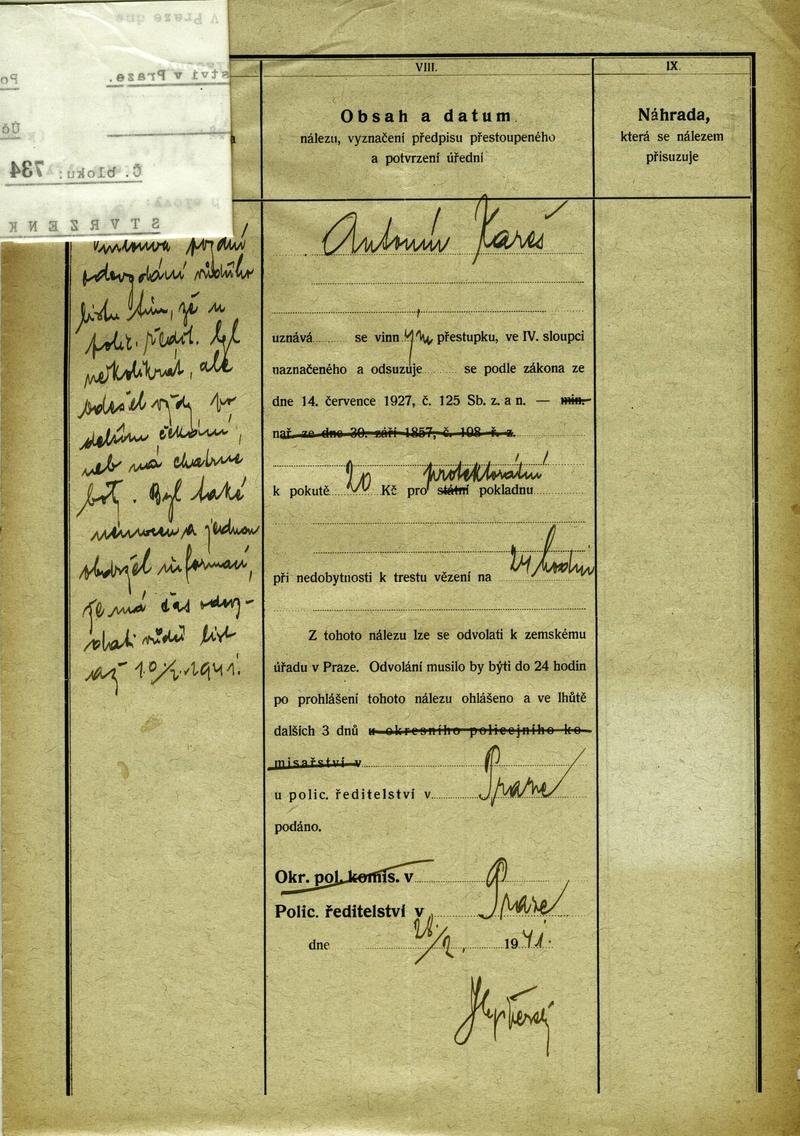 V Praze dne
ství v Praze.
Po
Úč
Č. bloku: 734
STVRZENK
odevzdání řidičského
listu tím, že u
polic. ředit. byl
několikrát, ale
odešel vždy po
delším čekání,
neb má chatrné
boty. Byl také
nemocen a jednou
obdržel informaci,
že má čas odevz-
dati řidič list
až 10/2. 1941.
VIII.
Obsah a datum
nálezu, vyznačení předpisu přestoupeného
a potvrzení úřední
Antonín Kareš
uznává se vinným přestupku, ve IV. sloupci
naznačeného a odsuzuje se podle zákona ze
dne 14. července 1927, č. 125 Sb. z. a n. — min.
nař. ze dne 30. září 1857, č. 198 ř. z.
protektorátní
k pokutě 20 Kč pro státní pokladnu
při nedobytnosti k trestu vězení na 24 hodin
Z tohoto nálezu lze se odvolati k zemskému
úřadu v Praze. Odvolání musilo by býti do 24 hodin
po prohlášení tohoto nálezu ohlášeno a ve lhůtě
dalších 3 dnů u okresního policejního ko-
misařství v
u polic. ředitelství v Praze
podáno.
Okr. pol. komis. v
Polic. ředitelství v Praze
dne 28/2. 1941.
IX.
Náhrada,
která se nálezem
přisuzuje